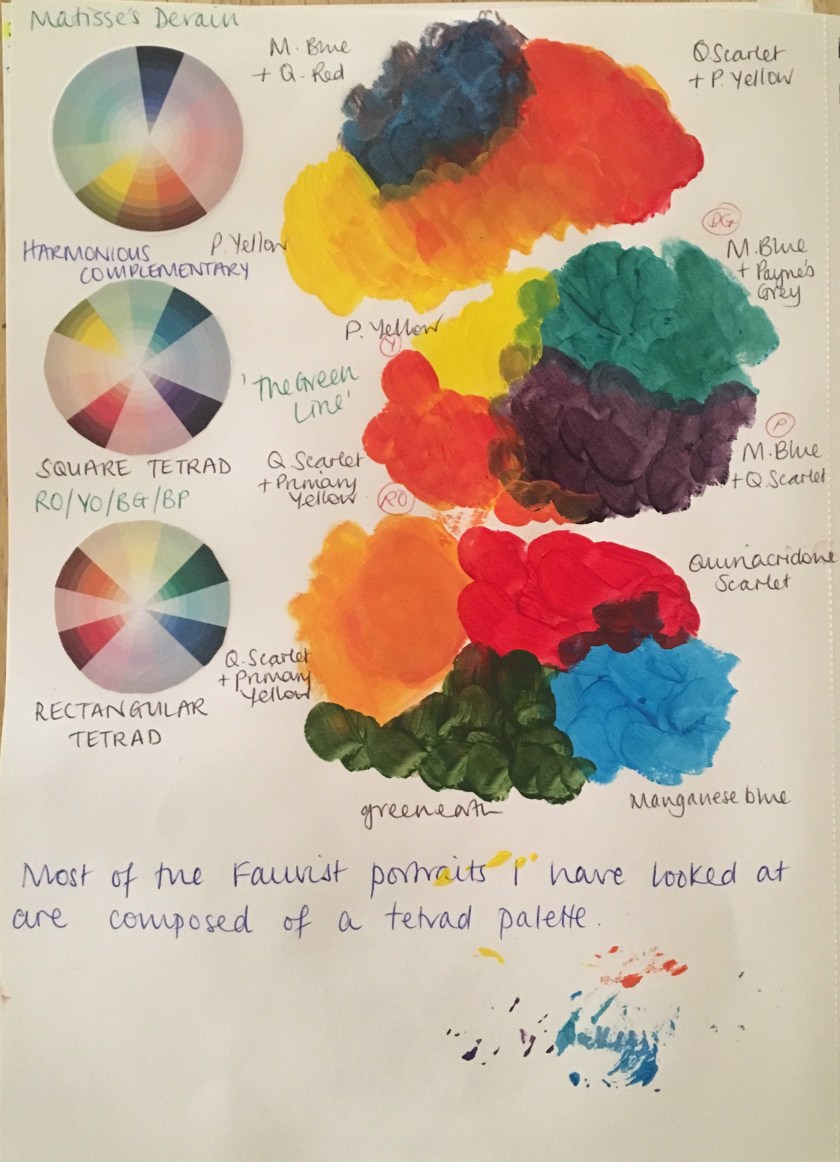 Matisse's Derain
M. Blue
+ Q. Red
Q Scarlet
+ P. Yellow
HARMONIOUS
COMPLEMENTARY
P. Yellow
DG
M. Blue
+ Payne's
Grey
P. Yellow
Y
'The Green
Line'
SQUARE TETRAD
RO/YO/BG/BP
Q. Scarlet
+ Primary
Yellow
RO
P
M. Blue
+ Q. Scarlet
Quinacridone
Scarlet
Q. Scarlet
+ Primary
Yellow
RECTANGULAR
TETRAD
greenearth
Manganese blue
Most of the Fauvist portraits I have looked at
are composed of a tetrad palette.